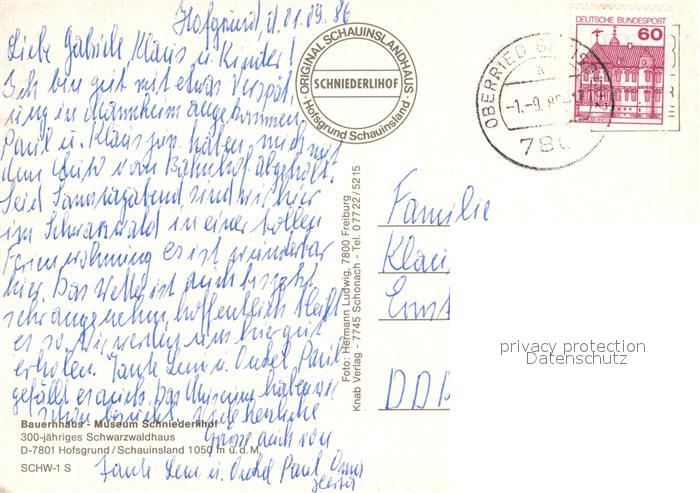 Hofsgrund, d. 01.09.86
Liebe Gabriele, Klaus u. Kinder!
Ich bin gut mit etwas Verspät,
ung in Mannheim angekommen.
Paul u. Klaus jun. haben mich mit
dem Auto vom Bahnhof abgeholt.
Seid Samstagabend sind wir hier
im Schwarzwald in einer tollen
Ferienwohnung es ist wunderbar
hier. Das Wetter ist auch bis jetzt
sehr angenehm, hoffentlich bleibt
es so. Wir werden uns hier gut
erholen. Tante Leni u. Onkel Paul
gefällt es auch. Das Museum haben wir
schon besucht. Viele herzliche
Grüsse auch von
Tante Leni u. Onkel Paul Oma
Herta
Bauernhaus - Museum Schniederlihof
300-jähriges Schwarzwaldhaus
D-7801 Hofsgrund / Schauinsland 1050 m ü. d. M.
SCHW-1 S
ORIGINAL SCHAUINSLANDHAUS
SCHNIEDERLIHOF
Hofsgrund Schauinsland
Foto: Hermann Ludwig, 7800 Freiburg
Knab Verlag - 7745 Schonach - Tel. 07722/5215
DEUTSCHE BUNDESPOST
60
OBERRIED
a
-1.-9.86
780
Familie
Klau
Ernst
DDR
privacy protection
Datenschutz